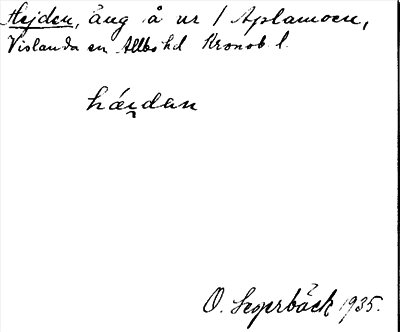 Hejden, äng å nr 1 Aplamoen,
Vislanda sn Allbo hd Kronob. l.
háı̯dan
O. Segerbäck 1935.